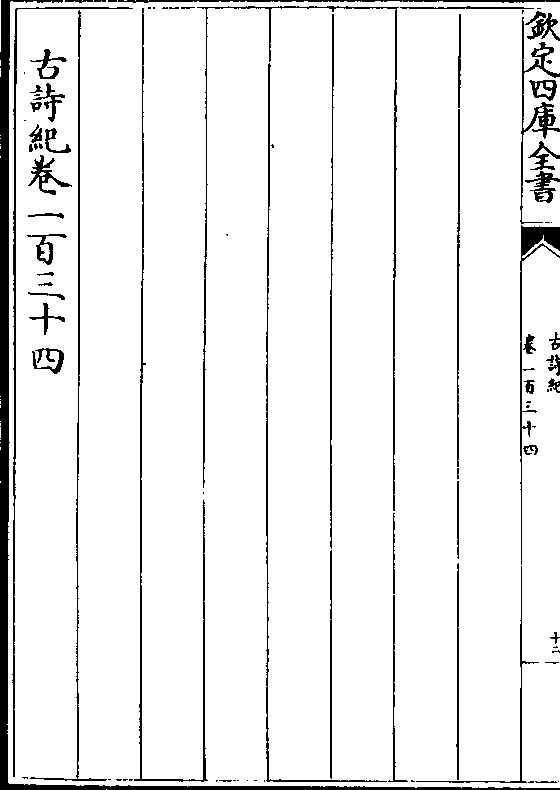 欽定四庫全書
古詩紀
卷一百三十四
十二
古詩紀卷一百三十四